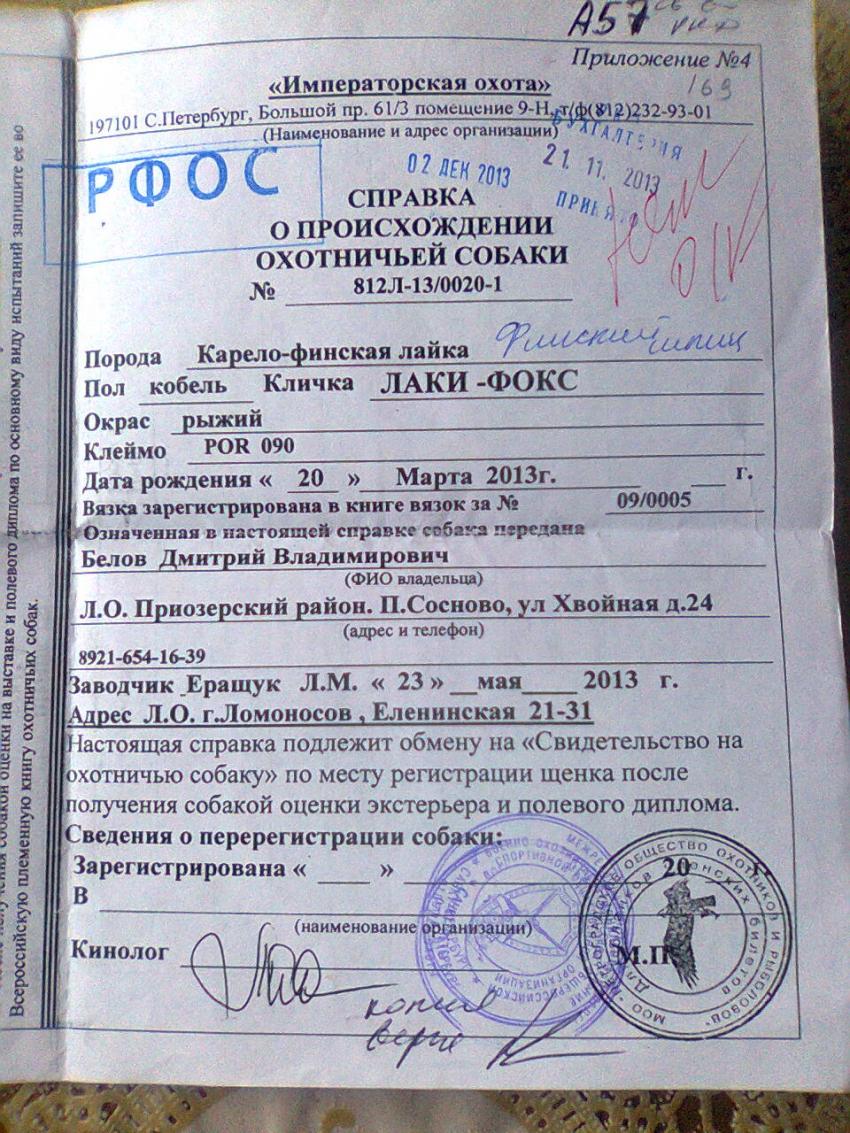 А57
Приложение №4
169
«Императорская охота»
197101 С.Петербург, Большой пр. 61/3 помещение 9-Н, т/ф(812)232-93-01
(Наименование и адрес организации)
БУХГАЛТЕРИЯ
РФОС
02 ДЕК 2013
21. 11. 2013
СПРАВКА
О ПРОИСХОЖДЕНИИ
ОХОТНИЧЬЕЙ СОБАКИ
№ 812Л-13/0020-1
Порода Карело-финская лайка Финский шпиц
Пол кобель Кличка ЛАКИ -ФОКС
Окрас рыжий
Клеймо POR 090
Дата рождения « 20 » Марта 2013г. г.
Вязка зарегистрирована в книге вязок за № 09/0005
Означенная в настоящей справке собака передана
Белов Дмитрий Владимирович
(ФИО владельца)
Л.О. Приозерский район. П.Сосново, ул Хвойная д.24
(адрес и телефон)
8921-654-16-39
Заводчик Еращук Л.М. « 23 » мая 2013 г.
Адрес Л.О. г.Ломоносов , Еленинская 21-31
Настоящая справка подлежит обмену на «Свидетельство на
охотничью собаку» по месту регистрации щенка после
получения собакой оценки экстерьера и полевого диплома.
Сведения о перерегистрации собаки:
Зарегистрирована « » 20 г.
В
(наименование организации)
Кинолог М.П.
копия
верна
собакой оценки на выставке и полевого диплома по основному виду испытаний запишите ее во
Всероссийскую племенную книгу охотничьих собак.
ОБЩЕСТВО ОХОТНИКОВ И РЫБОЛОВОВ"
билетов